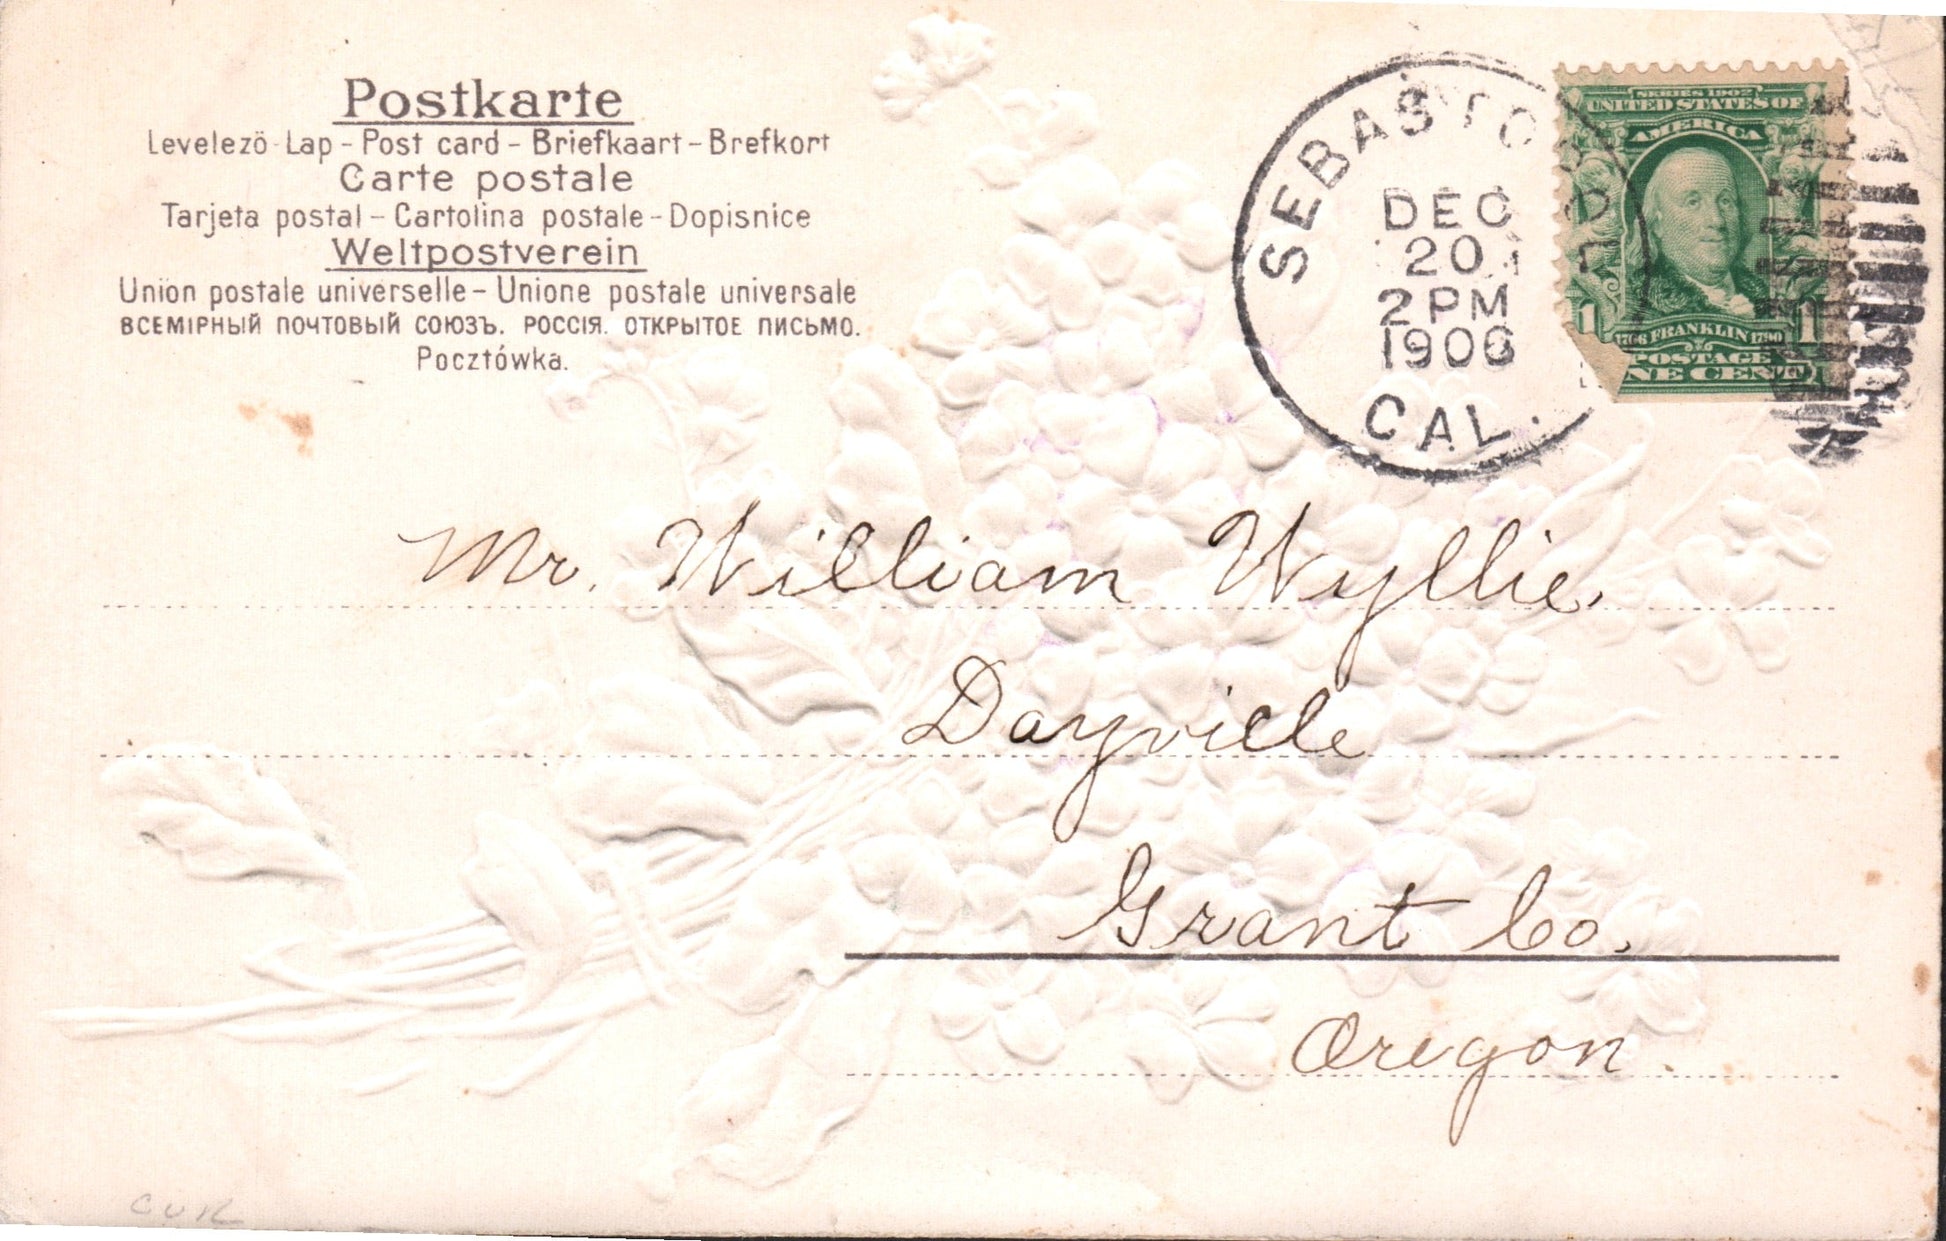 Postkarte
Levelezö-Lap - Post card - Briefkaart - Brefkort
Carte postale
Tarjeta postal - Cartolina postale - Dopisnice
Weltpostverein
Union postale universelle - Unione postale universale
ВСЕМІРНЫЙ ПОЧТОВЫЙ СОЮЗЪ. РОССІЯ. ОТКРЫТОЕ ПИСЬМО.
Pocztówka.
SEBASTOPOL
DEC
20
2 PM
1906
CAL.
SERIES 1902
UNITED STATES OF
AMERICA
1 1
1706 FRANKLIN 1790
POSTAGE
NE CENT
Mr. William Wyllie,
Dayville
Grant Co.
Oregon.